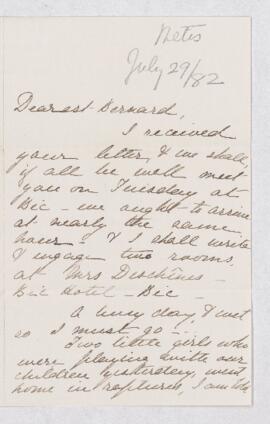 Metis
July 29/82
Dearest Bernard,
I received
your letter, & we shall,
if all be well meet
you on Tuesday at
Bic - we ought to arrive
at nearly the same
hour - & I shall write
& engage two rooms
at Mrs
Bic Hotel - Bic -
A busy day, & wet
so I must go -
Two little girls who
were playing with our
children yesterday, went
home in raptures, I am told